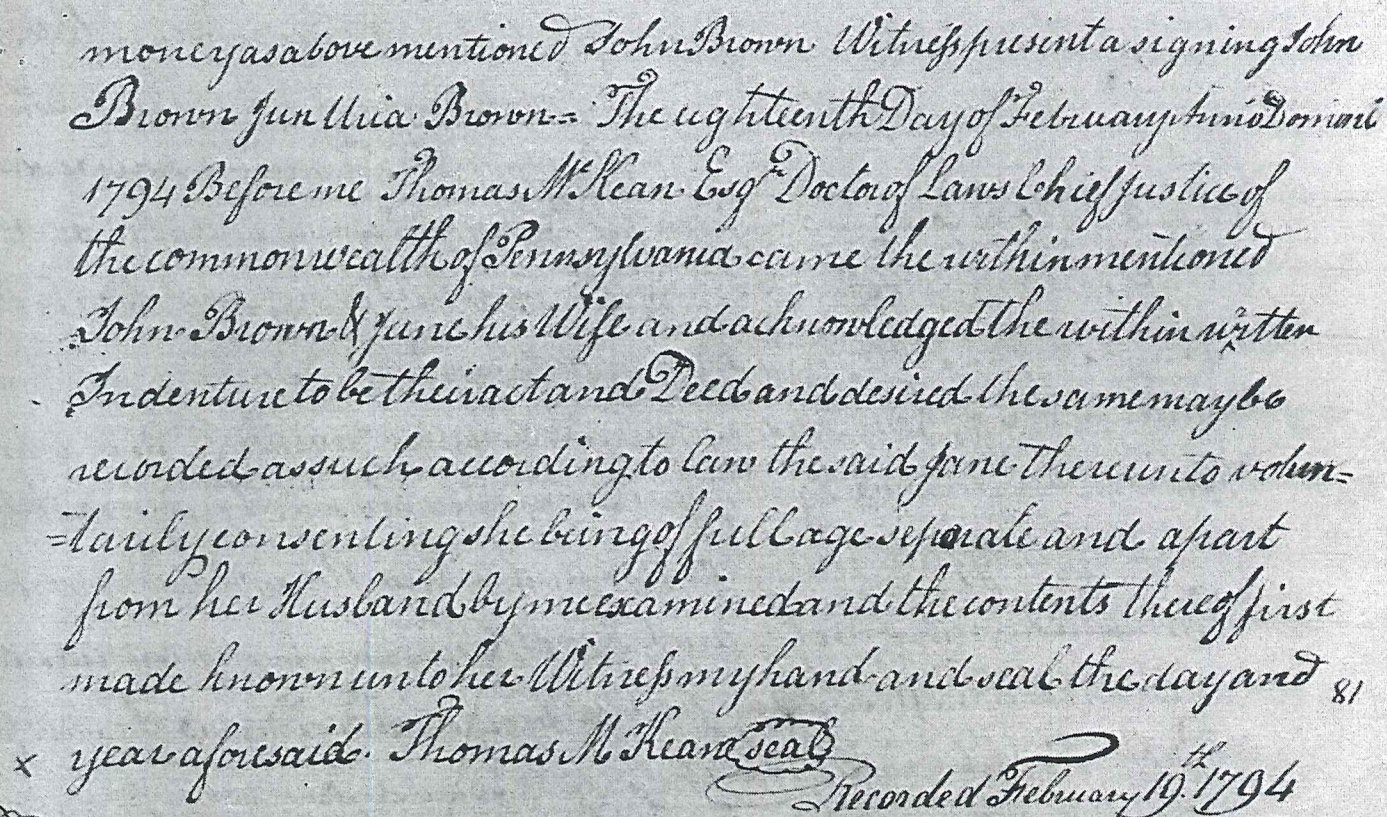 money as above mentioned John Brown Witness present a signing John
Brown Jun Uria Brown = The eighteenth Day of February Anno Domini
1794 Before me Thomas McKean Esqr Doctor of Laws Chief Justice of
the commonwealth of Pennsylvania came the within mentioned
John Brown & Jane his Wife and acknowledged the within written
Indenture to be their act and Deed and desired the same may be
recorded as such according to law the said Jane thereunto volun=
=tarily consenting she being of full age separate and apart
from her Husband by me examined and the contents thereof first
made known unto her Witness my hand and seal the day and 81
x year aforesaid. Thomas M Kean seal
Recorded February 19.th 1794